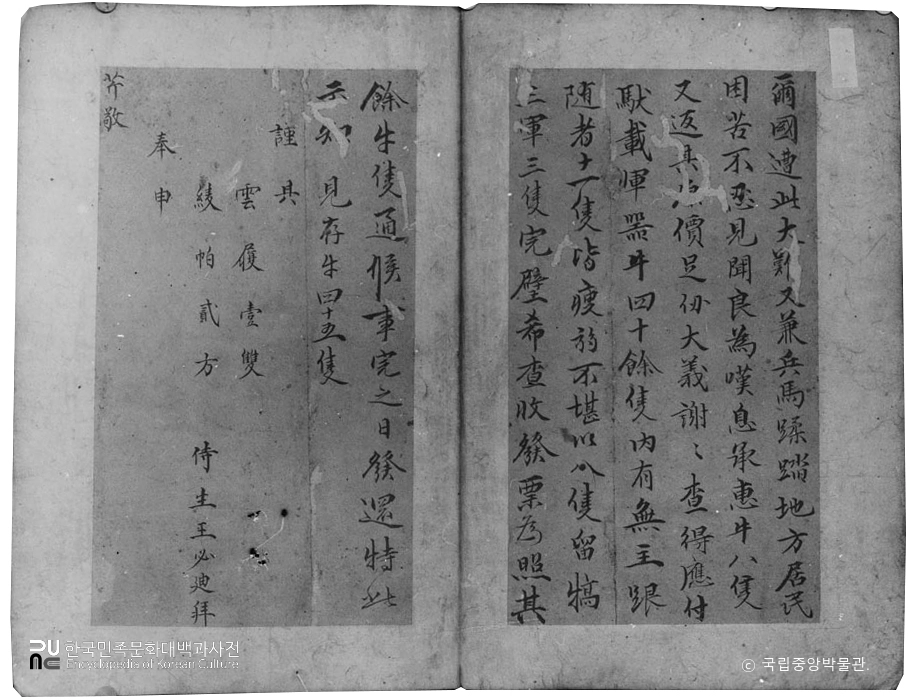 爾國遭此大難又兼兵馬蹂踏地方居民
困苦不忍見聞良為嘆息承惠牛八隻
又返真價足仞大義謝〻查得應付
馱載軍器牛四十餘隻內有無主跟
随者十一隻皆瘦弱不堪以八隻留犒
三軍三隻完璧希查收發票為照其
餘牛隻通候事完之日發還特此
示知 見存牛四十五隻
謹具
雲履壹雙
綾帕貳方 侍生王必迪拜
奉申
芹敬
한국민족문화대백과사전
Encyclopedia of Korean Culture
© 국립중앙박물관.